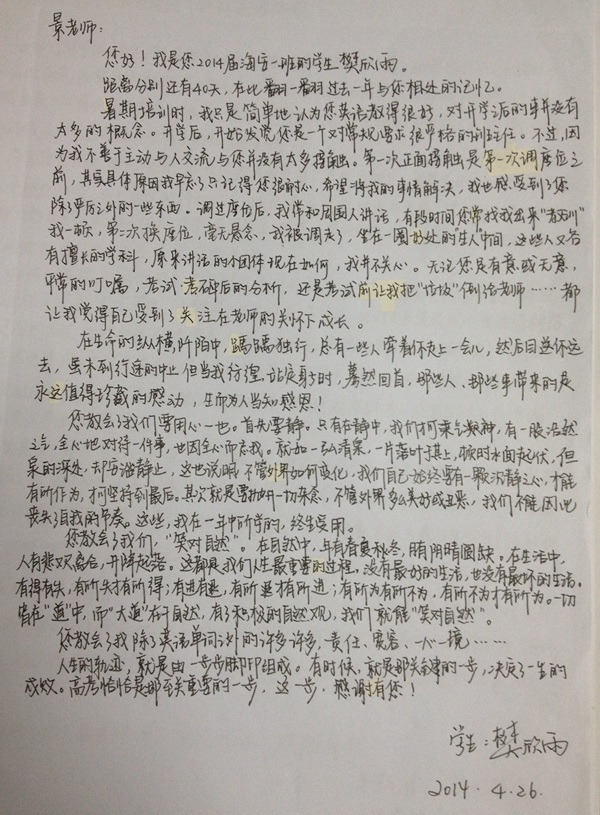 景老师：
您好！我是您2014届海方一班的学生樊欣雨。
距离分别还有40天，在此翻一翻过去一年与您相处的记忆。
暑期培训时，我只是简单地认为您英语教得很好，对开学后的事并没有
太多的概念。开学后，开始发觉您是一个对常规要求很严格的班主任。不过，因
为我不善于主动与人交流与您并没有太多接触。第一次正面接触是第一次调座位之
前，其实具体原因我早忘了只记得您很耐心，希望将我的事情解决，我也感受到了您
除严厉之外的一些东西。调过座位后，我常和周围人讲话，有段时间您常找我出来"教训"
我一顿，第二次换座位，毫无悬念，我被调走了，坐在一圈好处的"生人"中间，这些人又各
有擅长的学科，原来讲话的小团体现在如何，我并不关心。无论您是有意或无意，
平常的叮嘱，考试考砸后的分析，还是考试前让我把"垃圾"倒给老师……都
让我觉得自己受到了关注在老师的关怀下成长。
在生命的纵横阡陌中，踽踽独行，总有一些人牵着你走上一会儿，然后目送你远
去，虽未到行迹的中止但当我彷徨站定身子时，蓦然回首，那些人、那些事带来的是
永远值得珍藏的感动，生而为人当知感恩！
您教会了我们要用心一也。首先要静。只有在静中，我们才可聚气凝神，有一股浩然
之气，全心地对待一件事，也因全心而忘我。就如一弘清泉，一片落叶于其上，顿时水面起伏，但
泉的深处，却毫潜静止，这也说明不管外界如何变化，我们自己始终要有一颗沉静之心，才能
有所作为，才可坚持到最后。其次就是要切断一切杂念，不管外界多么美好或丑恶，我们不能因此
丧失了自我的节奏。这些，我在一年中所学的，终生受用。
您教会了我们，"笑对自然"。在自然中，年有春夏秋冬，月有阴晴圆缺。在生活中，
人有悲欢离合，升降起落。这都是我们人生最重要的过程，没有最好的生活，也没有最坏的生活。
有得有失，有所失才有所得；有进有退，有所退有所进；有所为有所不为，有所不为才有所为。一切
皆在"道"中，而"大道"在于自然，有了积极的自然观，我们就能"笑对自然"。
您教会了我除了英语单词之外的许多许多，责任、宽容、一心一境……
人生的轨迹，就是由一步步脚印组成。有时候，就是那关键的一步，决定了一生的
成败。高考恰恰是那至关重要的一步，这一步，感谢有您！
学生：樊欣雨
2014.4.26.